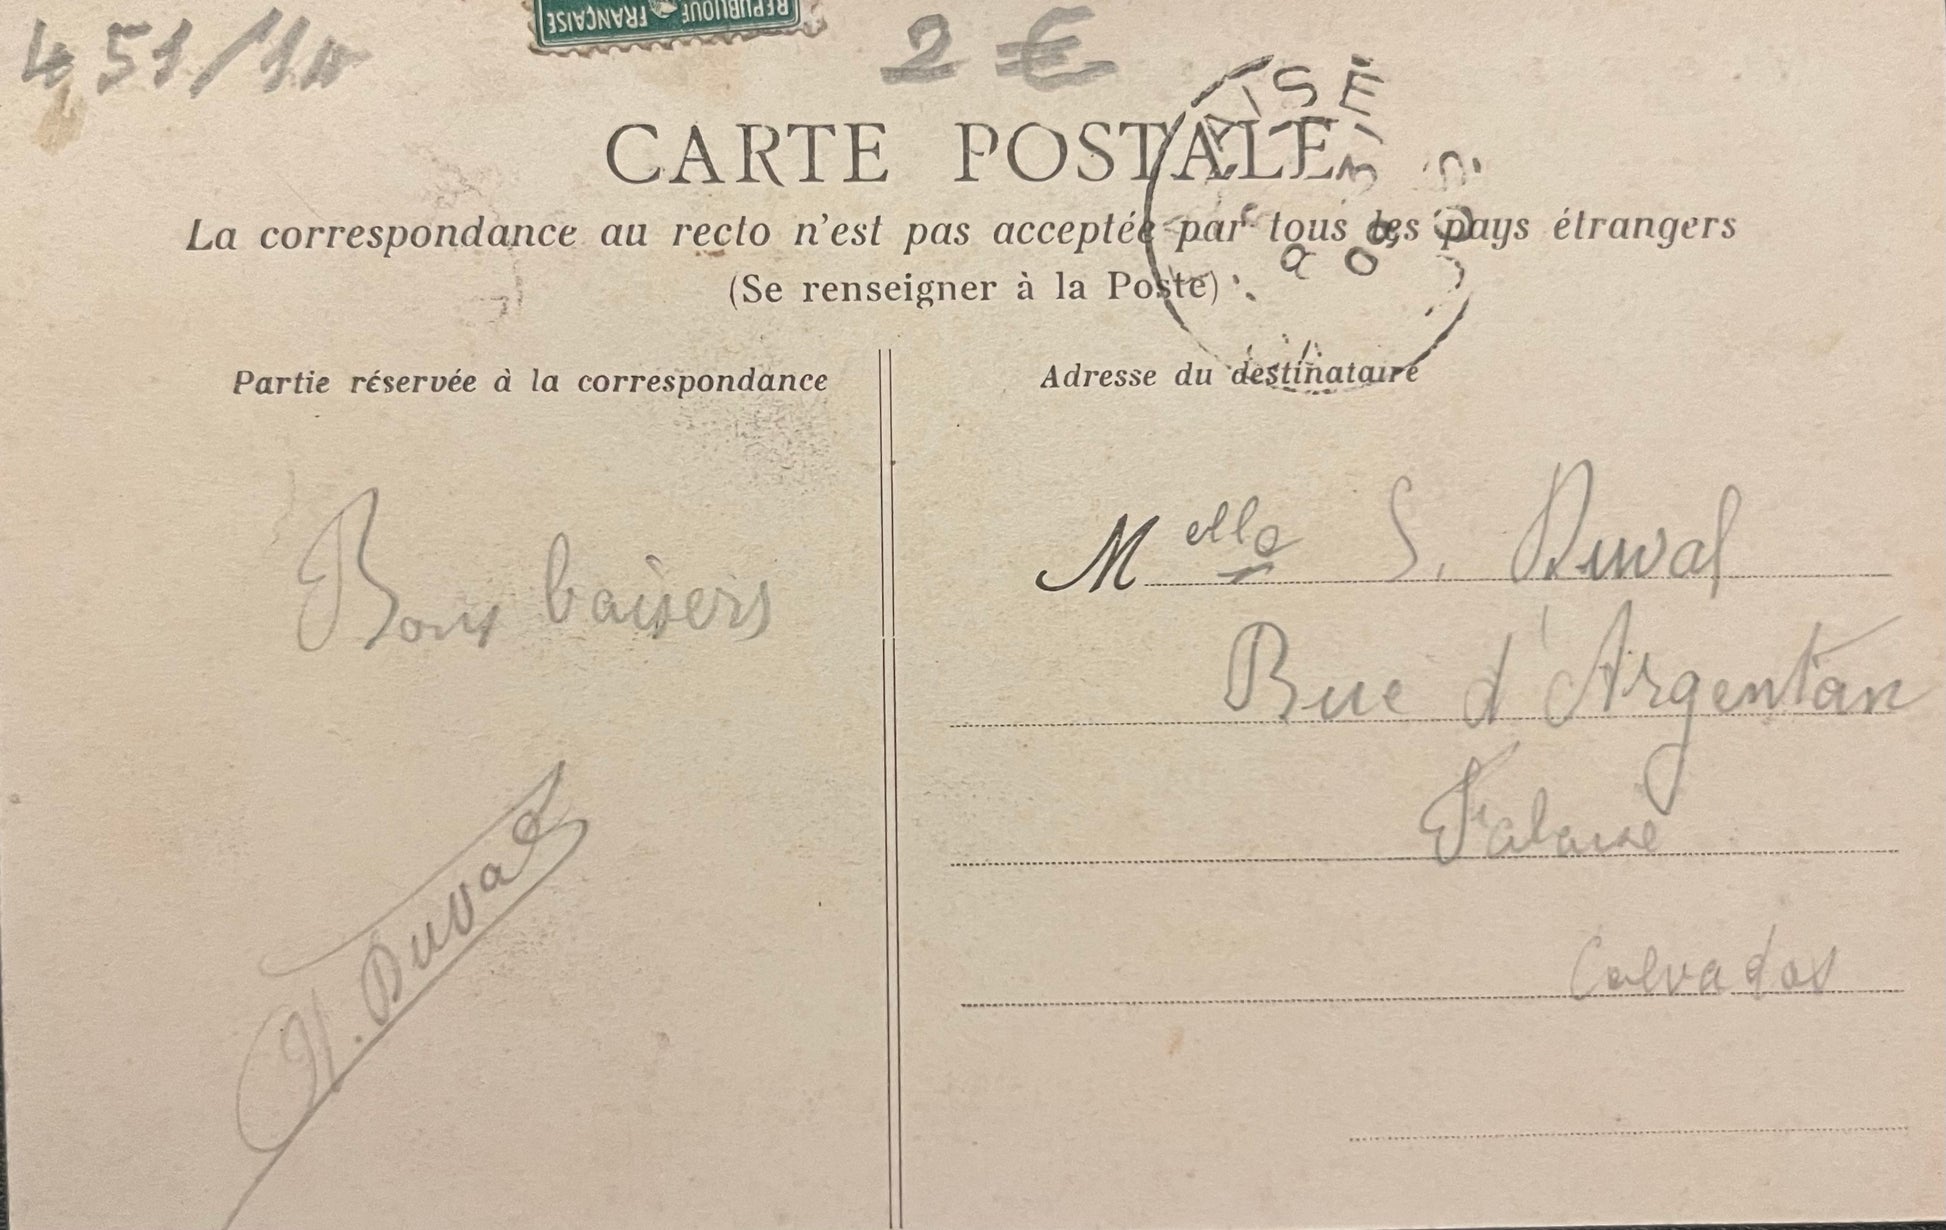 RÉPUBLIQUE FRANÇAISE
451/10
2 €
CARTE POSTALE
La correspondance au recto n'est pas acceptée par tous les pays étrangers
(Se renseigner à la Poste)
Partie réservée à la correspondance
Adresse du destinataire
Bons baisers
H. Duval
Melle S. Duval
Rue d'Argentan
Falaise
Calvados